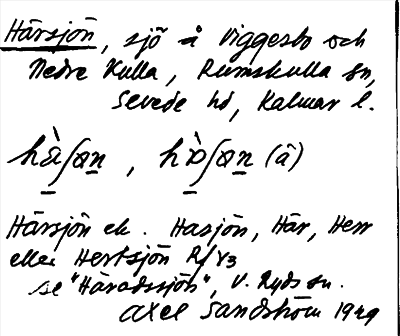 Härsjön, sjö å Viggesbo och
Nedre Kulla, Rumskulla sn,
Sevede hd, Kalmar l.
hàʃøn, hɒ̀ʃøn (â)
Härsjön el. Hasjön, Här, Herr
eller Hertsjön R/Y3
se "Häradssjön", V. Ryds sn.
Axel Sandström 1949